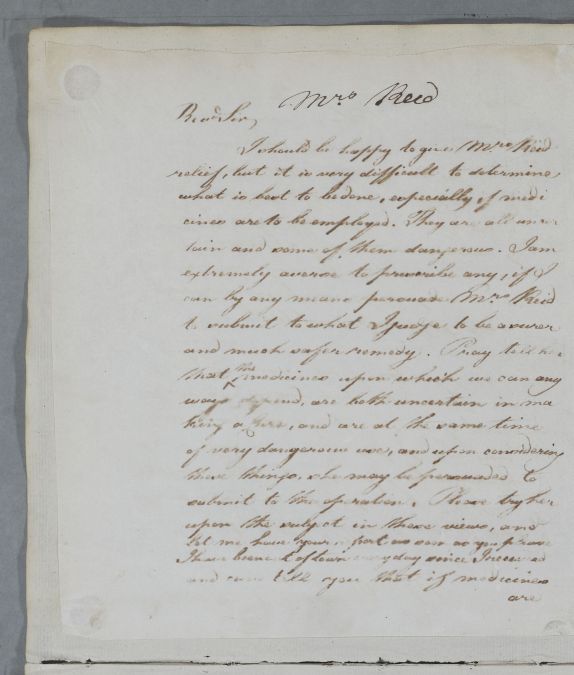 Mrs Reid
Revd Sir,
I should be happy to give Mrs Reid
relief, but it is very difficult to determine
what is best to be done, especially if medi
cines are to be employed. They are all uncer
tain and some of them dangerous. I am
extremely averse to prescribe any, if I
can by any means persuade Mrs Reid
to submit to what I judge to be a surer
and much safer remedy. Pray tell her
that the medicines upon which we can any
ways depend, are both uncertain in ma
king a cure, and are at the same time
of very dangerous use, and upon considering
these things, she may be persuaded to
submit to the operation. Please try her
upon the subject in these views, and
let me have your report as soon as you please
I have been out of town every day since I received
and can tell you that if medicines
are